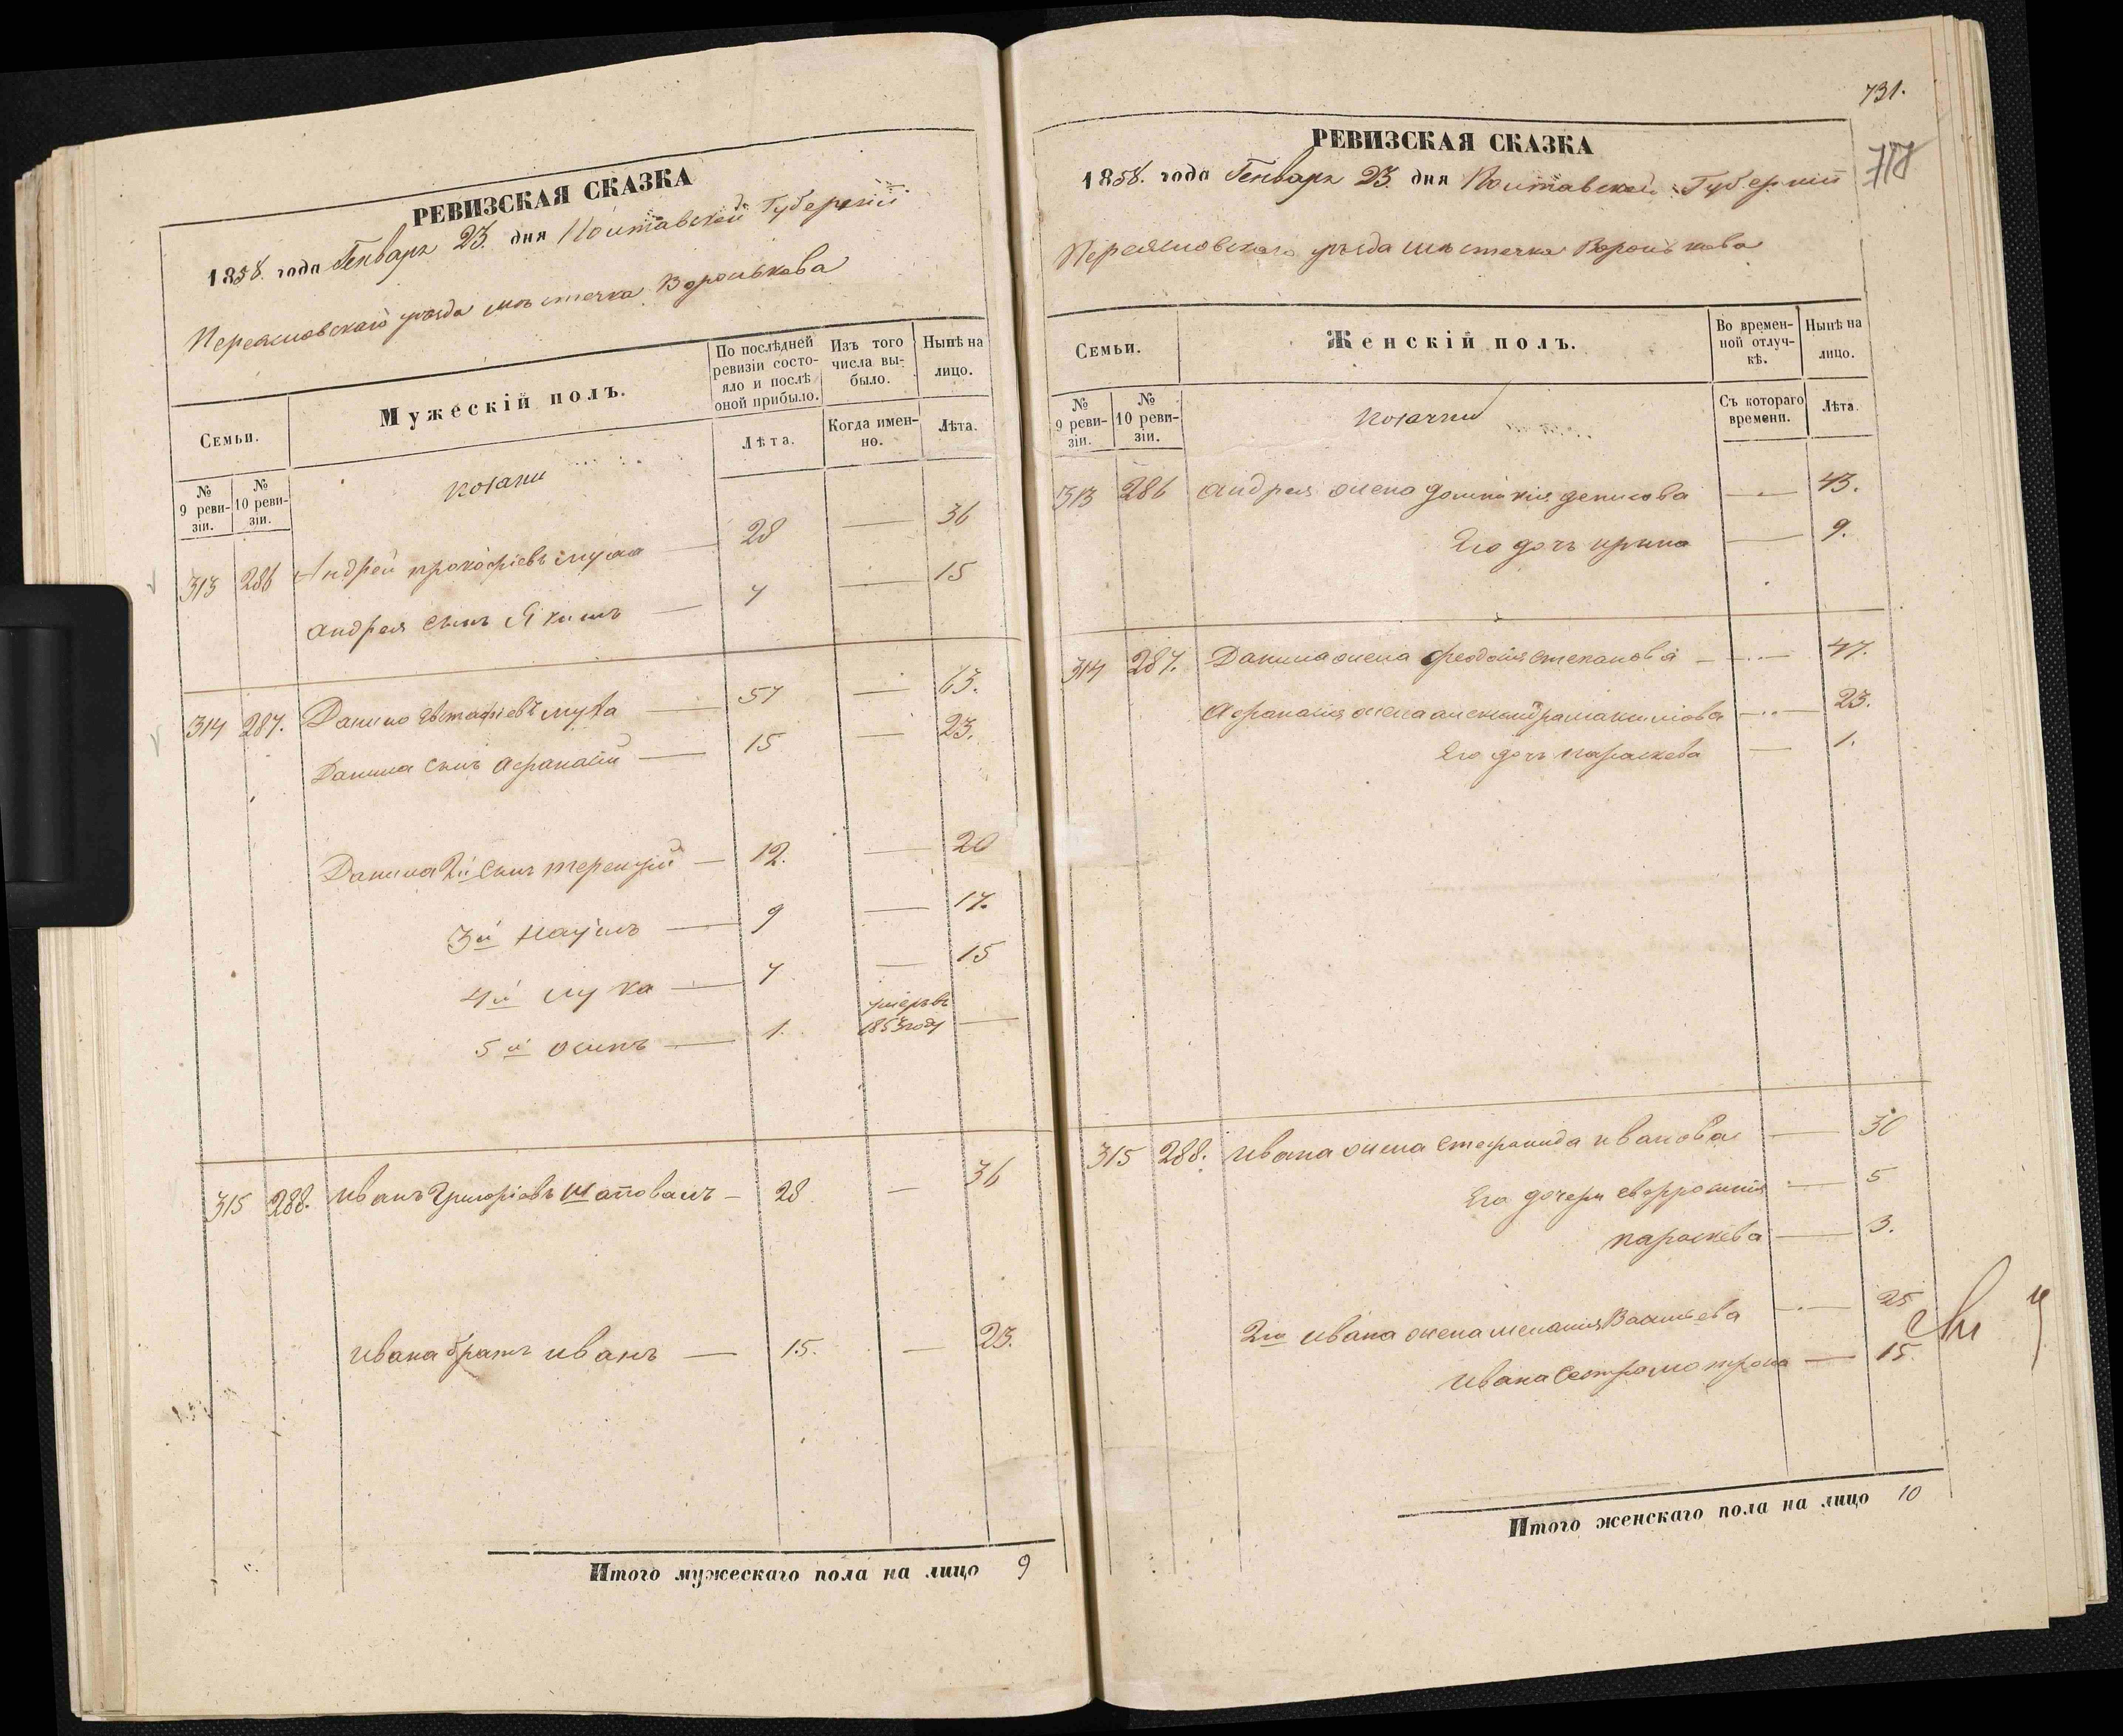 РЕВИЗСКАЯ СКАЗКА
1858. года Генваря 23. дня Полтавской Губерніи
Переяславскаго уѣзда мѣстечка Воронькова
Семьи.
Мужескій полъ.
По послѣдней ревизіи состояло и послѣ оной прибыло.
Изъ того числа выбыло.
Нынѣ на лицо.
№ 9 ревизіи.
№ 10 ревизіи.
Лѣта.
Когда именно.
Лѣта.
козаки
313 286 Андрей прокофіевъ муха — 28 — 36
андрея сынъ Якимъ — 7 — 15
314 287. Данило Евстафіевъ муха — 57 — 63.
Данила сынъ Афанасій — 15 — 23.
Данила 2й сынъ терентій — 12. — 20
3й наумъ — 9 — 17.
4й лука — 7 — 15
5й осипъ — 1. умеръ въ 1853 году —
315 288. иванъ Григоріевъ шаповалъ — 28 — 36
ивана братъ иванъ — 15. — 23.
Итого мужескаго пола на лицо 9
731.
718
РЕВИЗСКАЯ СКАЗКА
1858. года Генваря 23. дня Полтавской Губерніи
Переяславскаго уѣзда мѣстечка Воронькова
Семьи.
Женскій полъ.
Во временной отлучкѣ.
Нынѣ на лицо.
№ 9 ревизіи.
№ 10 ревизіи.
Съ котораго времени.
Лѣта.
козачки
313 286 андрея жена домникія денисова — 43.
Его дочь ирина — 9.
314 287. Данила жена феодосія степанова — 47.
Афанасія жена александра максимова — 23.
Его дочь параскева — 1.
315 288. ивана жена стефанида иванова — 30
Его дочери евфросинія — 5
параскева — 3.
2го ивана жена меланія Васильева — 25
ивана сестра мотрона — 15.
Итого женскаго пола на лицо 10